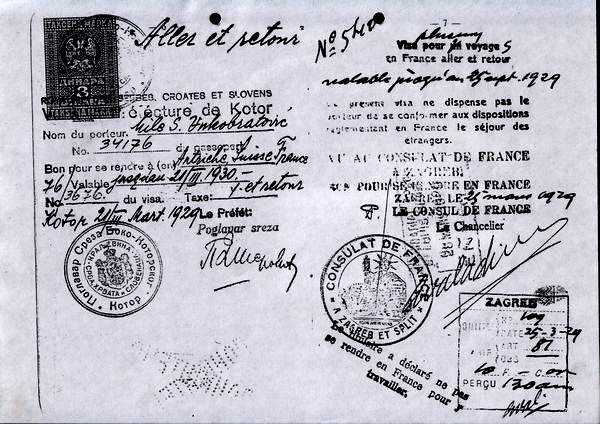 ТАКСЕНА МАРКА
ДИНАРА
3
Aller et retour
SERBES, CROATES ET SLOVENS
de Kotor
Nom du porteur. Mile S.
No. 34176 du passeport
Bon pour se rendre à (en) Autriche, Suisse, France
76/ Valable jusqu'au 21/III 1930.-
No 3676. du visa. Taxe: y. et retour
Kotor 21/III Mart. 1929 Le Préfet:
Poglavar sreza
Поглавар Среза Боко-Которског
КРАЉЕВИНА СРБА, ХРВАТА И СЛОВЕНАЦА
Котор
- 7 -
No
Visa pour voyage S
en France aller et retour
valable jusqu'au 25 sept. 1929
Le present visa ne dispense pas le
porteur de se conformer aux dispositions
réglementant en France le séjour des
étrangers.
VU AU CONSULAT DE FRANCE
A ZAGREB
POUR SE RENDRE EN FRANCE
ZAGREB LE 25 mars 1929
P. LE CONSUL DE FRANCE
Le Chancelier
CONSULAT DE FRANCE
A ZAGREB ET SPLIT
Le titulaire a déclaré ne pas
se rendre en France pour y
travailler.
ZAGREB
DATE 25-3-29
ART 81
10 F. - C. OR
PERÇU